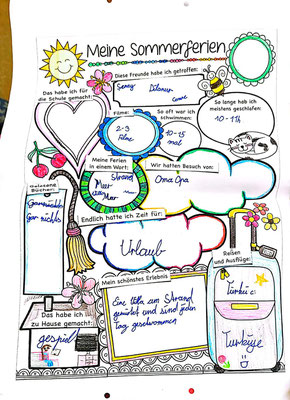 Meine Sommerferien
Diese Freunde habe ich getroffen:
Das habe ich für
die Schule gemacht:
So lange hab ich
meistens geschlafen:
10 - 11h
Filme:
2-3
Filme
So oft war ich
schwimmen:
10-15
mal
Meine Ferien
in einem Wort:
Strand
Meer
Meer
Wir hatten Besuch von:
Oma Opa
Gelesene
Bücher:
Gar nichts
Endlich hatte ich Zeit für:
Urlaub
Reisen
und Ausflüge:
Türkei
Mein schönstes Erlebnis
Eine Villa am Strand
gemietet und sind jeden
Tag geschwommen
Das habe ich
zu Hause gemacht:
gespielt